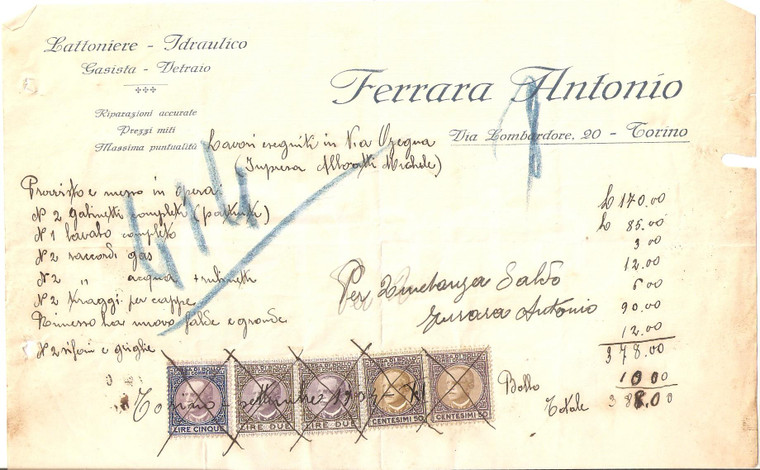 Lattoniere - Idraulico
Gasista - Vetraio
Riparazioni accurate
Prezzi miti
Massima puntualità
Ferrara Antonio
Via Lombardore, 20 - Torino
Lavori eseguiti in Via Ozegna
(Impresa Michele)
414
Provvisto e messo in opera:
N 2 gabinetti completi (pattuiti) £ 170.00
N 1 lavabo completo £ 85.00
N 2 raccordi gas 3.00
N 2 " acqua + rubinetti 12.00
N 2 per 6.00
Rimesso nuovo falde e gronde 90.00
N 2 sifoni e griglie 12.00
378.00
Per Quietanza Saldo
Ferrara Antonio
Bollo 10.00
Totale 388.00
Torino settembre
LIRE CINQUE
LIRE DUE
LIRE DUE
CENTESIMI 50
CENTESIMI 50